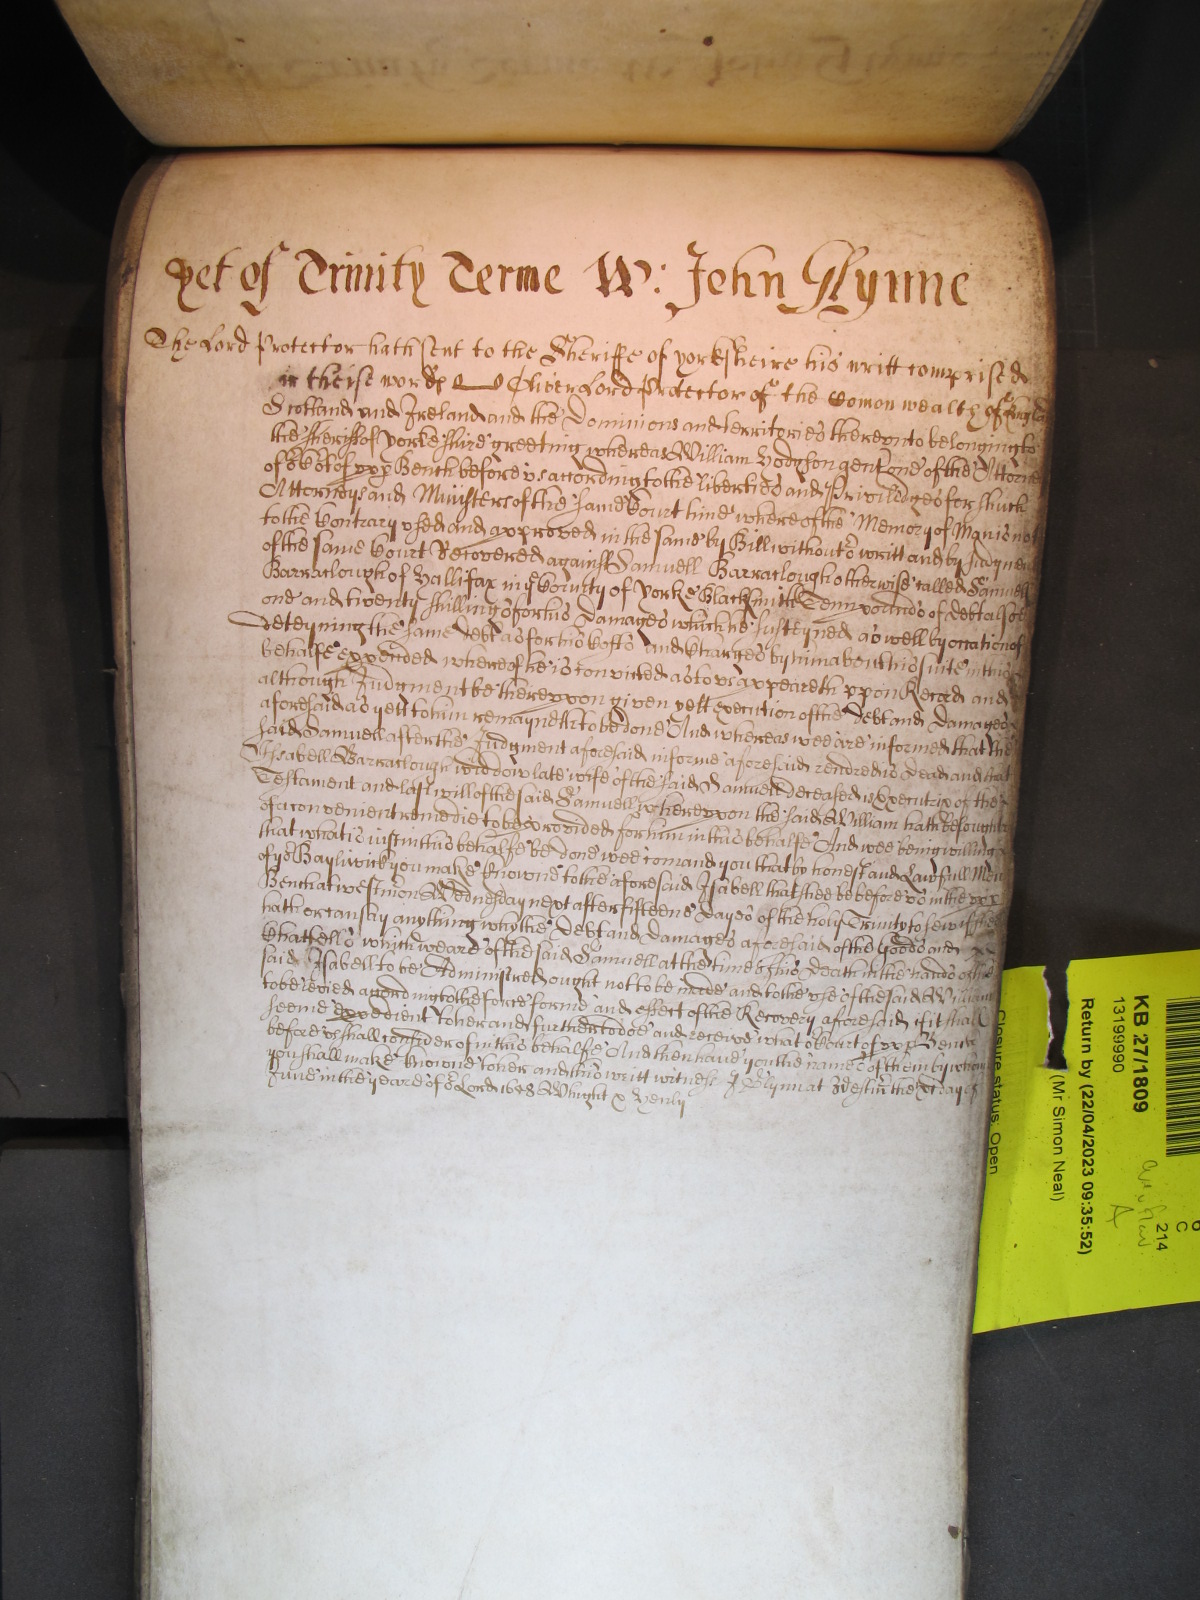 yet of Trinity Terme W: John Glynne
The Lord Protector hath sent to the Sheriffe of yorkesheire his writt comprised
in theise words Oliver Lord Protector of the Comon wealth of England
Scotland and Ireland and the Dominions and territories therevnto belonging to
the sheriff of yorkeshire greeting whereas William Hodgson gent one of the Attorneys
of the Court of vpp Bench before vs according to the liberties and Priviledges for shuch
Attorneys and Ministers of the same Court time whereof the Memory of Man is not
to the Contrary vsed and approved in the same by Bill without writt and by Judgment
of the same Court Recovered against Samuell Barraclough otherwise called Samuell
Barraclough of Hallifax in ye County of yorke Blacksmith Tenn pounds of debt alsoe
one and twenty shillings for his Damages which he susteyned as well by occation of
deteyning the same debt as for his Costs and Charges by him about his suite in this
behalfe expended whereof he is convicted as to vs appeareth vppon Record and
although Judgment be therevpon given yett execution of the debt and Damages
aforesaid as yett to him remayneth to be done And whereas wee are informed that the
said Samuell after the Judgment aforesaid in forme aforesaid rendred is dead and that
Issabell Barraclough widdow late wife of the said Samuell deceased is Executrix of the
Testament and last will of the said Samuell wherevpon the said William hath besought vs
of a convenient remedie to be provided for him in this behalfe And wee being willing
that what is iust in this behalfe be done wee comand you that by honest and Lawfull Men
of yor Bayliwick you make knowne to the aforesaid Isabell that shee be before vs in the vpp
Bench at westmr on Wednesday next after fifteene dayes of the holy Trinity to shew if shee
hath or can say anything why the Debt and Damages aforesaid of the Goods and
Chattells which weare of the said Samuell at the time of his Death in the hands of the
said Isabell to be Administred ought not to be made and to the vse of the said William
to be levied according to the force forme and effect of the Recovery aforesaid if it shall
seeme expedient to her and further to doe and receive what or Court of vpp Bench
before vs shall consider of in this behalfe And then have you the names of them by whom
you shall make knowne to her and this writt witnes J Glynn at Westmr the dayes
June in the yeare of or Lord 1658 Wright & Henly
KB 27/1809
13199990
Return by (22/04/2023 09:35:52)
(Mr Simon Neal)
Closure status: Open
C
214
A